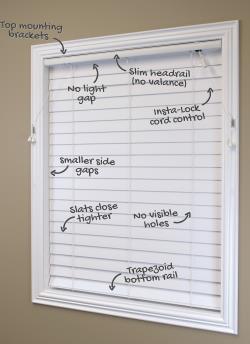 Top mounting
brackets
Slim headrail
(no valance)
No light
gap
Insta-Lock
cord control
Smaller side
gaps
Slats close
tighter
No visible
holes
Trapezoid
bottom rail